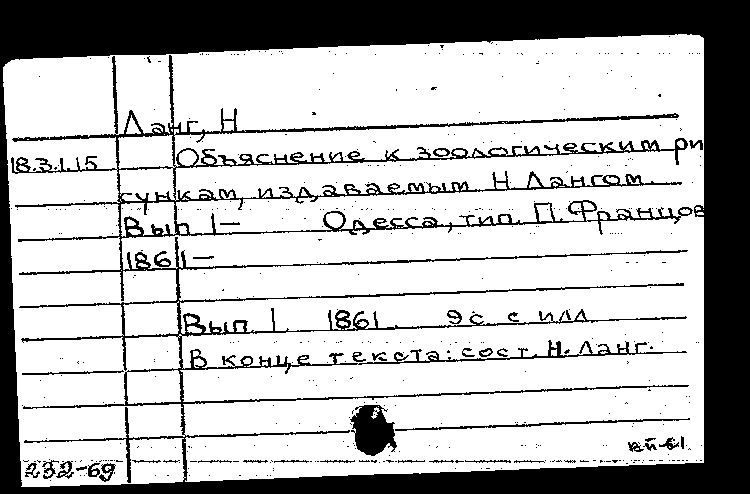 Ланг, Н
18.3.1.15 Объяснение к зоологическим ри
сункам, издаваемым Н Лангом.
Вып 1— Одесса, тип. П. Францов
1861—
Вып 1 1861. 9 с. с илл
В конце текста: сост. Н. Ланг.
232-69